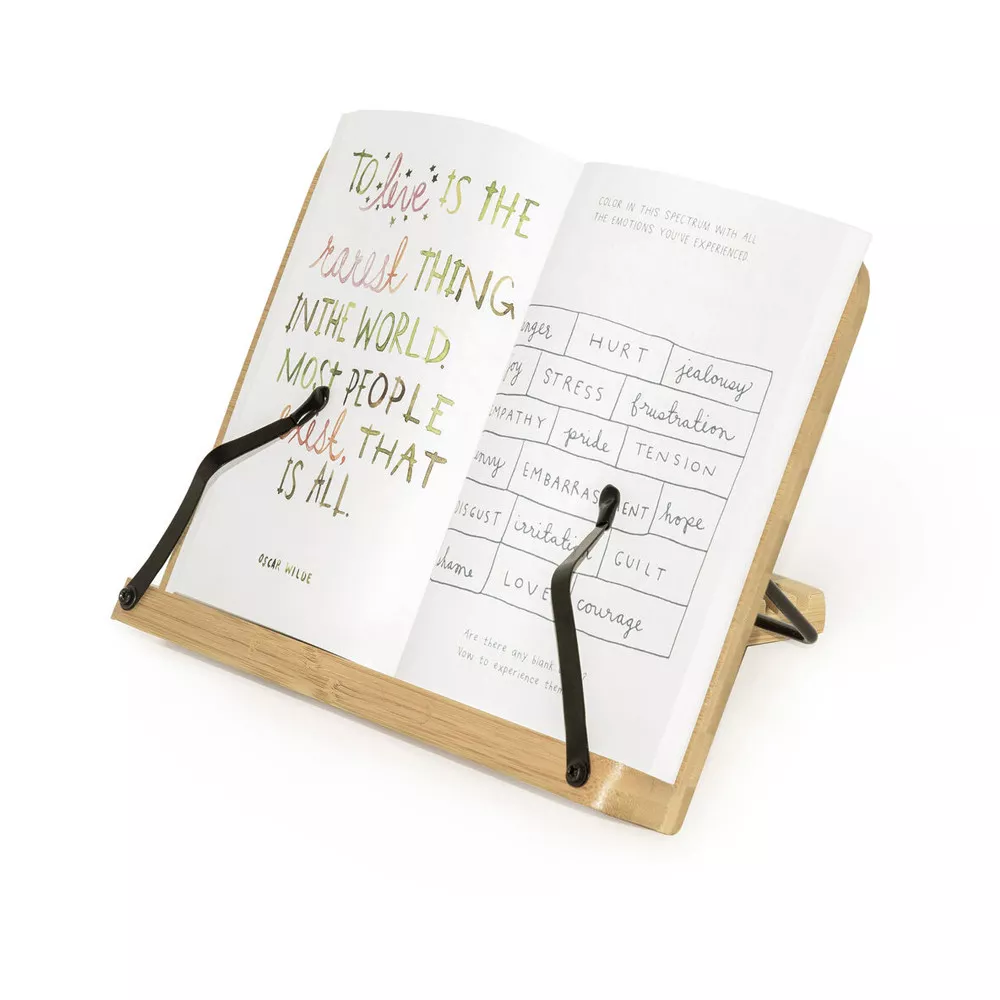 TO live IS THE
rarest THING
IN THE WORLD.
MOST PEOPLE
exist, THAT
IS ALL.
OSCAR WILDE
COLOR IN THIS SPECTRUM WITH ALL
THE EMOTIONS YOU'VE EXPERIENCED.
nger HURT jealousy
joy STRESS frustration
EMPATHY pride TENSION
envy EMBARRAS ENT hope
DISGUST irritati GUILT
shame LOVE courage
Are there any blank ?
Vow to experience them